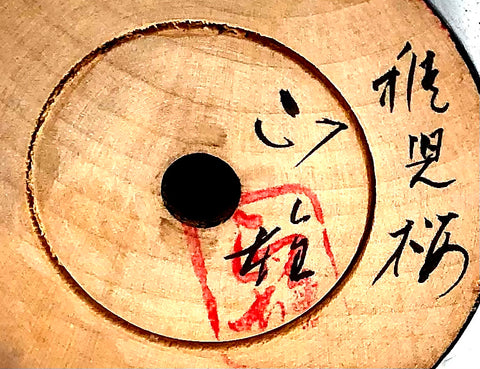 稚児桜
山雄